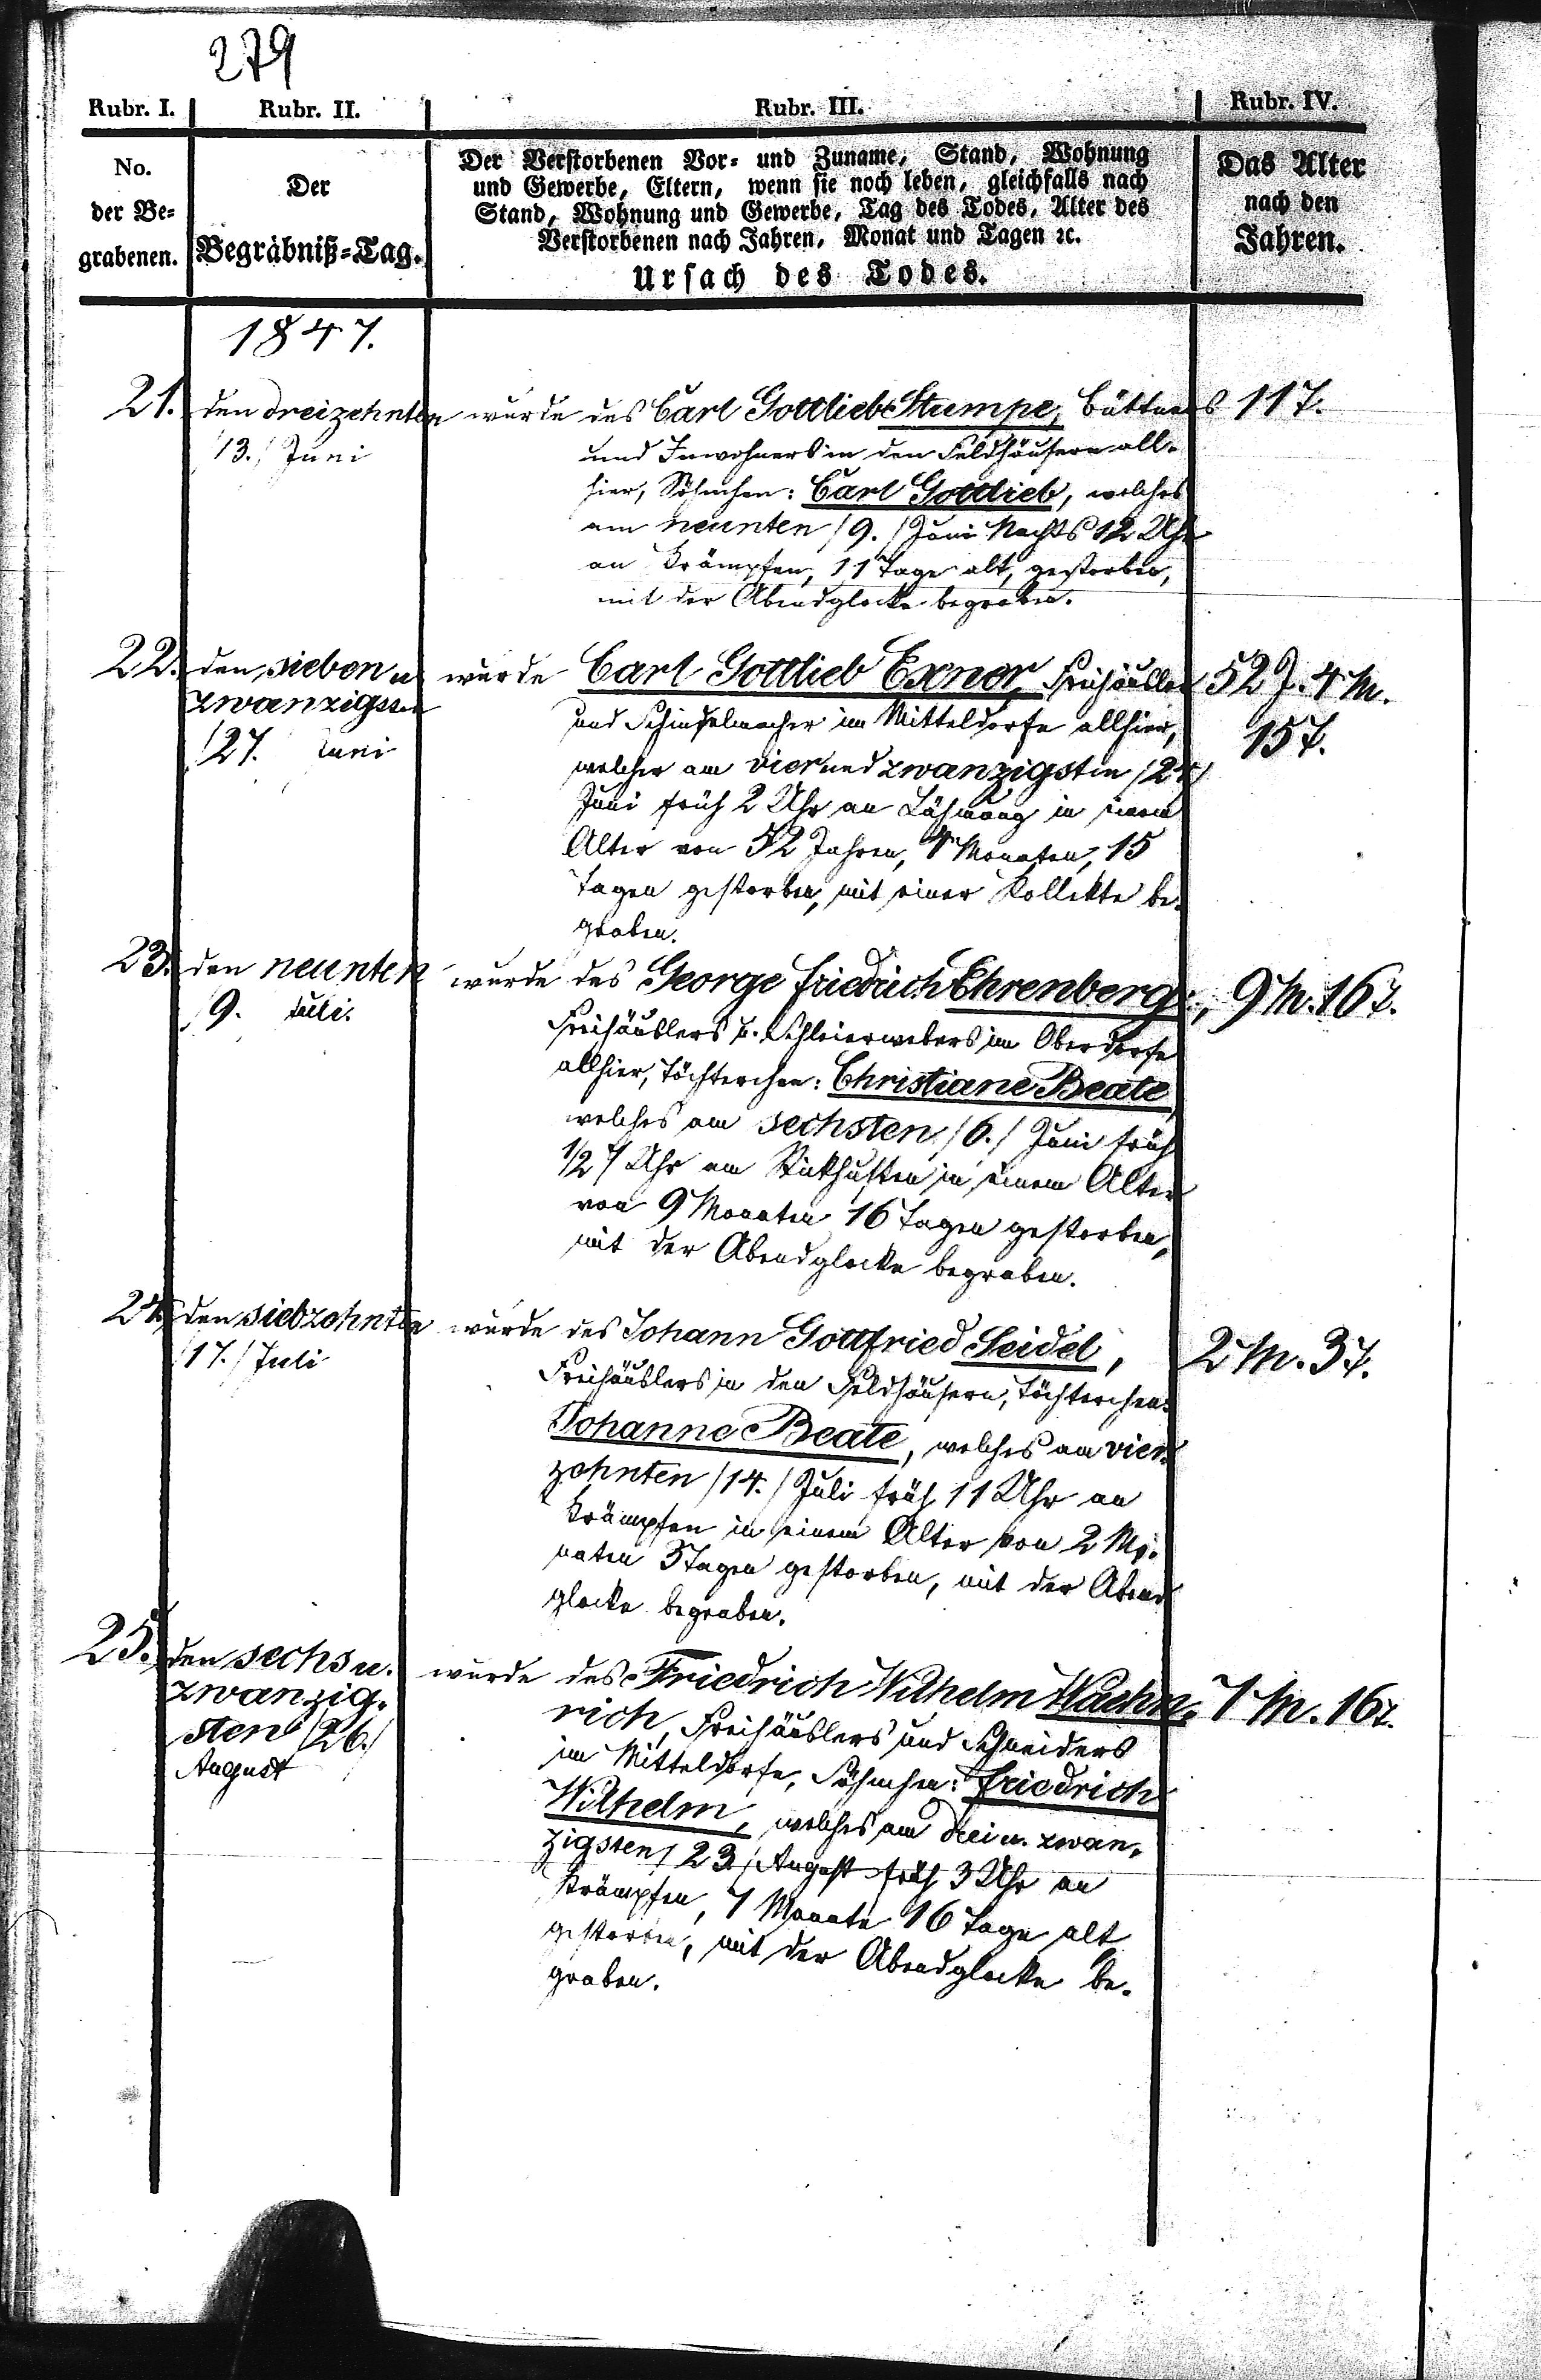 279
Rubr. I.
Rubr. II.
Rubr. III.
Rubr. IV.
No.
der Be-
grabenen.
Der
Begräbniß-Tag.
Der Verstorbenen Vor- und Zuname, Stand, Wohnung
und Gewerbe, Eltern, wenn sie noch leben, gleichfalls nach
Stand, Wohnung und Gewerbe, Tag des Todes, Alter des
Verstorbenen nach Jahren, Monat und Tagen ꝛc.
Ursach des Todes.
Das Alter
nach den
Jahren.
1847.
21.
den dreizehnten
/13./ Juni
wurde des Carl Gottlieb Stumpe, Büttners
und Inwohners in den Feldhäusern all-
hier, Söhnchen: Carl Gottlieb, welches
am neunten /9./ Juni Nachts 12 Uhr
an Krämpfen, 11 Tage alt, gestorben,
mit der Abendglocke begraben.
11 T.
22.
den sieben u.
zwanzigsten
/27. Juni
wurde Carl Gottlieb Exner, Freihäusler
und Schindelmacher im Mitteldorfe allhier,
welcher am vier und zwanzigsten /24/
Juni früh 2 Uhr an Lähmung in einem
Alter von 52 Jahren, 4 Monaten, 15
Tagen gestorben, mit einer Kollekte be-
graben.
52 J. 4 M.
15 T.
23.
den neunten
/9. Juli.
wurde des George Friedrich Ehrenberg,
Freihäuslers u. Schleierwebers im Oberdorfe
allhier, Töchterchen: Christiane Beate,
welches am sechsten /6./ Juni früh
1/2 7 Uhr am Stickhusten in einem Alter
von 9 Monaten 16 Tagen gestorben,
mit der Abendglocke begraben.
9 M. 16 T.
24.
den siebzehnten
/17./ Juli
wurde des Johann Gottfried Seidel,
Freihäuslers in den Feldhäusern, Töchterchen:
Johanne Beate, welches am vier-
zehnten /14./ Juli früh 11 Uhr an
Krämpfen in einem Alter von 2 Mo-
naten 3 Tagen gestorben, mit der Abend
glocke begraben.
2 M. 3 T.
25.
den sechs u.
zwanzig-
sten /26./
August
wurde des Friedrich Wilhelm
rich, Freihäuslers und Schneiders
im Mitteldorfe, Söhnchen: Friedrich
Wilhelm, welches am drei u. zwan-
zigsten /23./ August früh 3 Uhr an
Krämpfen, 7 Monate 16 Tage alt
gestorben, mit der Abendglocke be-
graben.
7 M. 16 T.